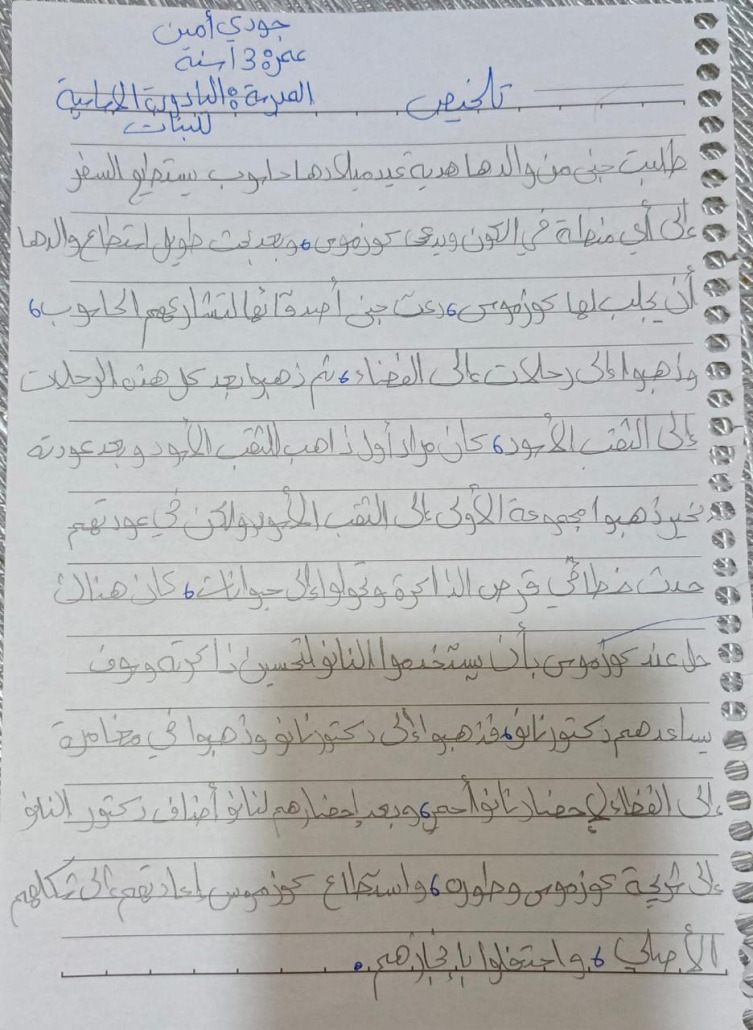 جودي أمين
عمره 13 سنة
المدرسة: البادودية الإسلامية
للبنات
تلخيص
طلبت جنى من والدها هدية عيد ميلادها حاسوب يستطيع السفر
إلى أي منطقة في الكون ويدعى كوزموس، وبعد بحث طويل استطاع والدها
أن يجلب لها كوزموس، دعت جنى أصدقائها لتشاركهم الحاسوب،
وذهبوا إلى رحلات إلى الفضاء، ثم ذهبوا بعد كل هذه الرحلات
إلى الثقب الأسود، كان مراد أول ذاهب للثقب الأسود وبعد عودته
بخير ذهبوا مجموعة الأولى إلى الثقب الأسود ولكن في عودتهم
حدث خطأ في قرص الذاكرة وتحولوا إلى حيوانات، كان هناك
حل عند كوزموس بأن يستخدموا النانو لتحسين ذاكرته وسوف
يساعدهم دكتور نانو، فذهبوا إلى دكتور نانو وذهبوا في مغامرة
إلى الفضاء لإحضار نانو أحمر، وبعد إحضارهم لنانو أضاف دكتور النانو
إلى شريحة كوزموس وطوره، واستطاع كوزموس إعادتهم إلى شكلهم
الأصلي، واحتفلوا بإنجازهم.